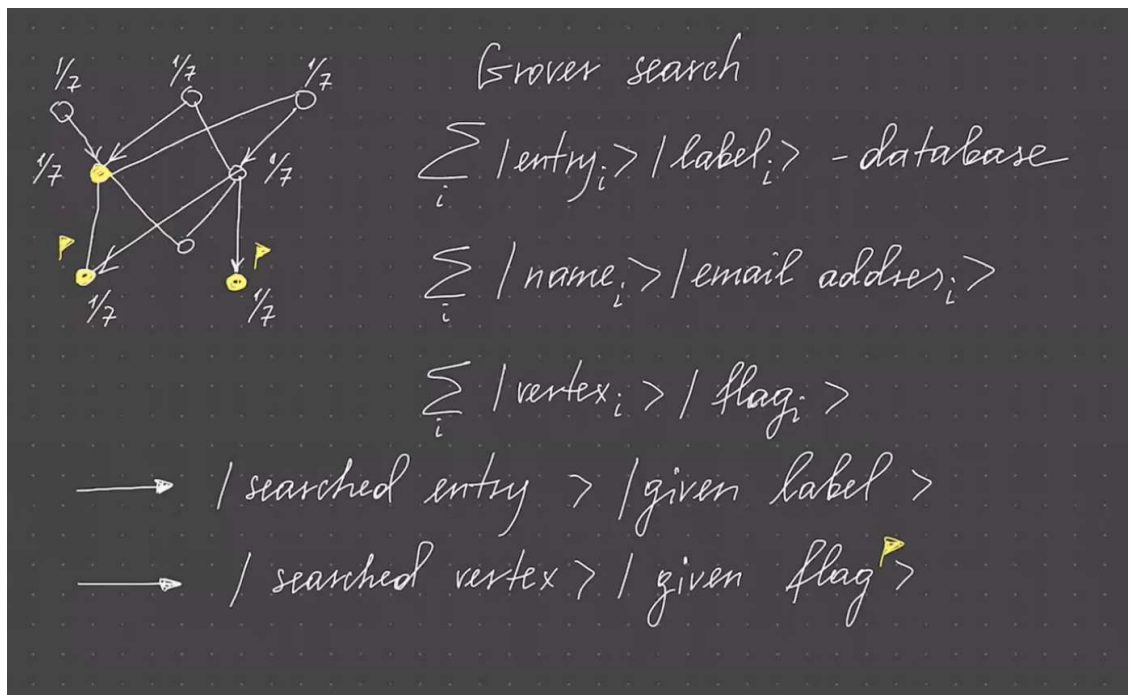 1/7 1/7 1/7
1/7 1/7
1/7 1/7
Grover search
∑ᵢ |entryᵢ> |labelᵢ> - database
∑ᵢ |nameᵢ> |email addresᵢ>
∑ᵢ |vertexᵢ> |flagᵢ>
→ |searched entry> |given label>
→ |searched vertex> |given flag>